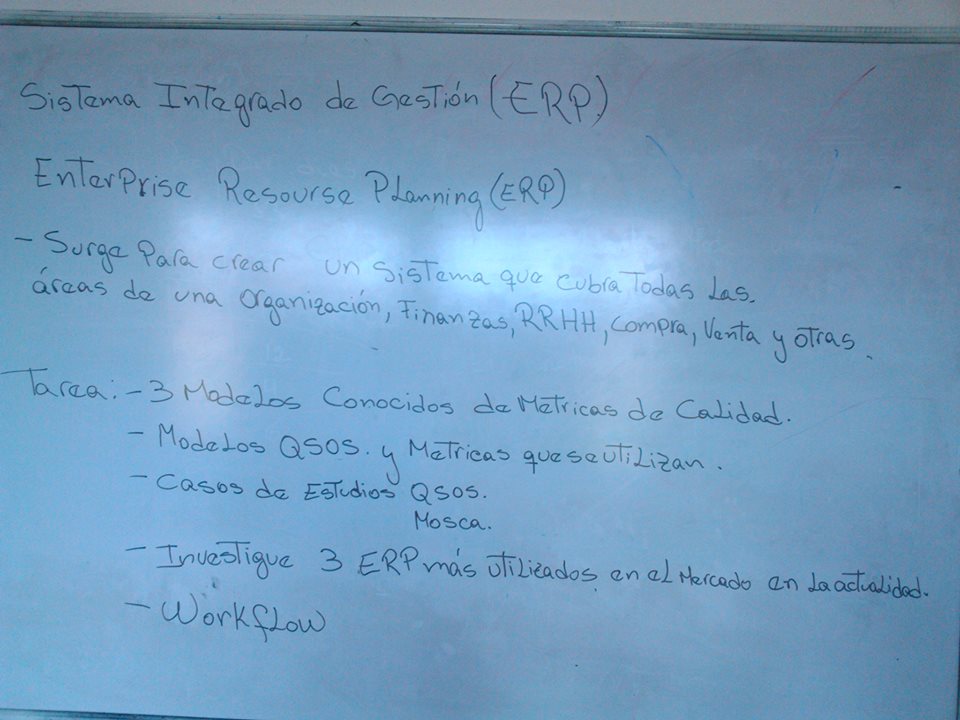 Sistema Integrado de Gestión (ERP)
Enterprise Resourse Planning (ERP)
- Surge Para crear un Sistema que Cubra Todas Las
áreas de una Organización, Finanzas, RRHH, Compra, Venta y otras.
Tarea: - 3 Modelos Conocidos de Metricas de Calidad.
- Modelos QSOS. y Metricas que se utilizan.
- Casos de Estudios QSOS.
Mosca.
- Investigue 3 ERP más utilizados en el Mercado en La actualidad.
- Workflow